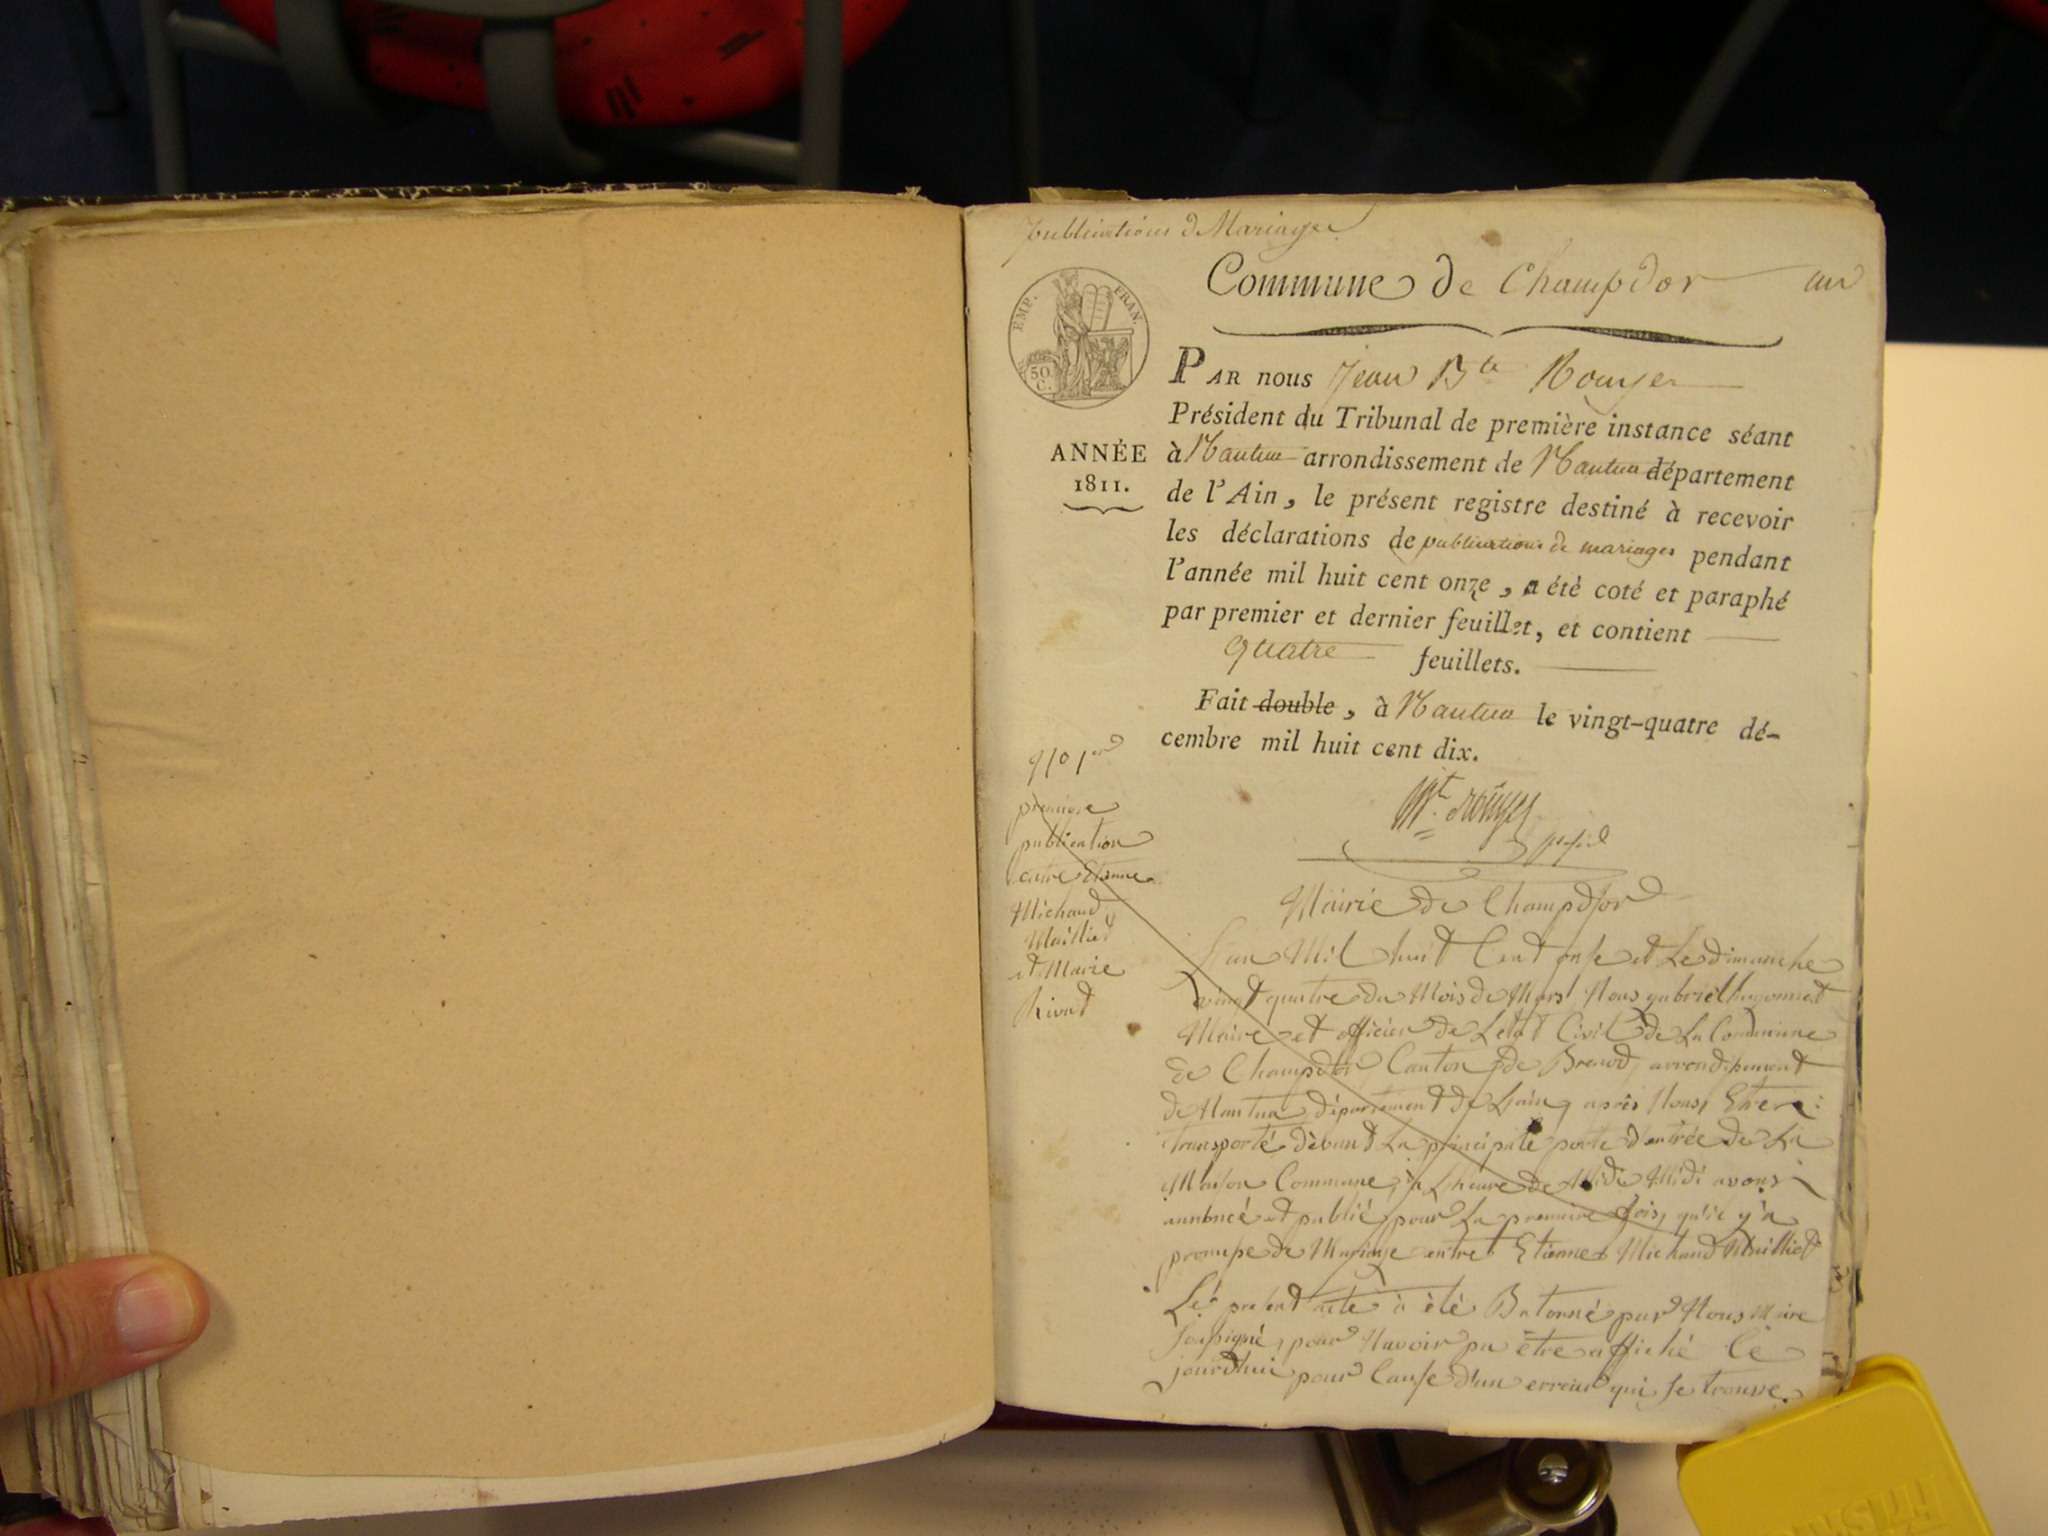 Publications de Mariage
Commune de Champdor
un
EMP. FRAN.
50
C.
ANNÉE
1811.
PAR nous Jean Bte Rouyer
Président du Tribunal de première instance séant
à Nantua arrondissement de Nantua département
de l'Ain, le présent registre destiné à recevoir
les déclarations de publications de mariages pendant
l'année mil huit cent onze, a été coté et paraphé
par premier et dernier feuillet, et contient
quatre feuillets.
Fait double, à Nantua le vingt-quatre dé-
cembre mil huit cent dix.
Mairie de Champdor
premiere
publication
entre Etienne
Michaud
Maillied
et Marie
Rivat
L'an Mil huit Cent onse et Le dimanche
vingt quatre du Mois de Mars Nous gabriel hugonnet
Maire et officier de Letat Civil de La Commune
de Champdor Canton de Brenod, arrondissement
de Nantua département de Lain, après Nous Etre
transporté dèvant La principale porte d'entrée de La
Maison Commune, à Lheure de Midi avons
annoncé et publié pour La premiere fois, qu'il y'a
promesse de Mariage entre Etienne Michaud Maillied
Le present acte à èté Batonné par Nous Maire
Soussigné, pour Navoir pu être affiché Ce
jourdhui pour Cause d'un erreur qui se trouve.